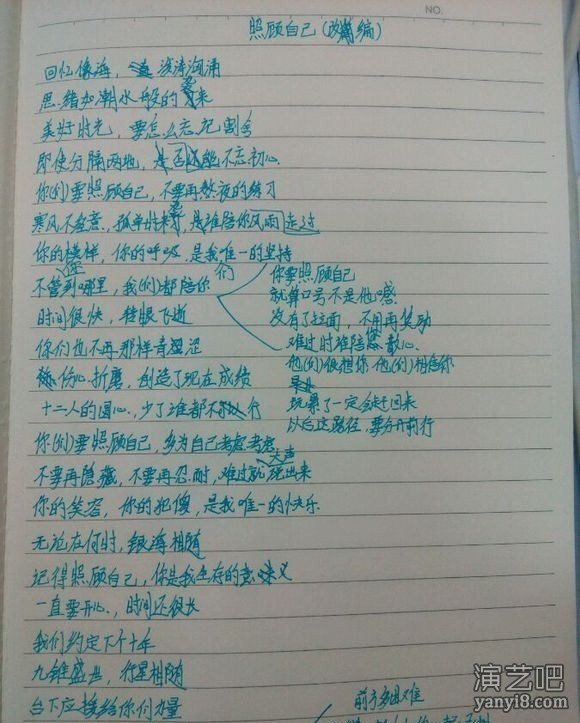 NO.
照顾自己(改编)
回忆像海，波涛汹涌
思绪如潮水般的袭来
美好时光，要怎么忘记割舍
即使分隔两地，是否还能不忘初心
你(们)要照顾自己，不要再熬夜的练习
寒风不经意，孤单时来袭，是谁陪你风雨走过
你的模样，你的呼吸，是我唯一的坚持
不管你到哪里，我(们)都陪你们
时间很快，转眼飞逝
你们也不再那样青涩
伤心折磨，创造了现在成绩
十二人的圆心，少了谁都不行
你(们)要照顾自己，多为自己考虑考虑
不要再隐藏，不要再忍耐，难过就大声说出来
你的笑容，你的犯傻，是我唯一的快乐
无论在何时，银海相随
记得照顾自己，你是我生存的意义
一直要开心，时间还很长
我们约定下个十年
九锥盛业，行星相随
台下应援给你们力量
你要照顾自己
就算口号不是他喊
没有了拉面，不用再奖励
难过时谁陪你散心
他(们)很想你 他(们)相信你
玩累了一定会赶回来
以后这路径，要分开前行
前方多困难
演艺吧
yanyi8.com